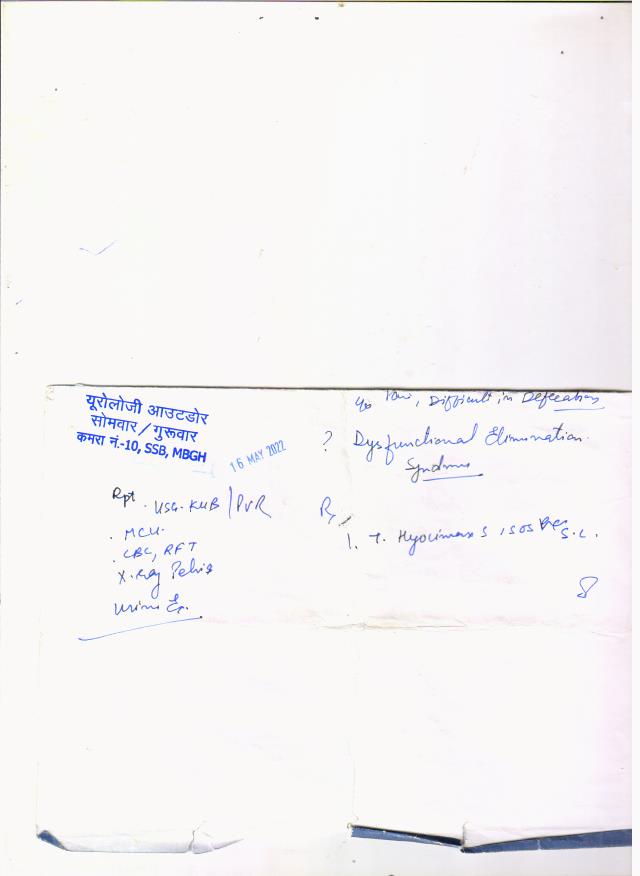 यूरोलोजी आउटडोर
सोमवार / गुरूवार
कमरा नं.-10, SSB, MBGH
16 MAY 2022
Rpt. USG. KUB / PVR
. MCU.
. CBC, RFT
X-ray Pelvis
Urine
Pain, Difficult in Defecation
? Dysfunctional Elimination
Syndrome
Rx
1. T. Hyocimax S 1 SOS